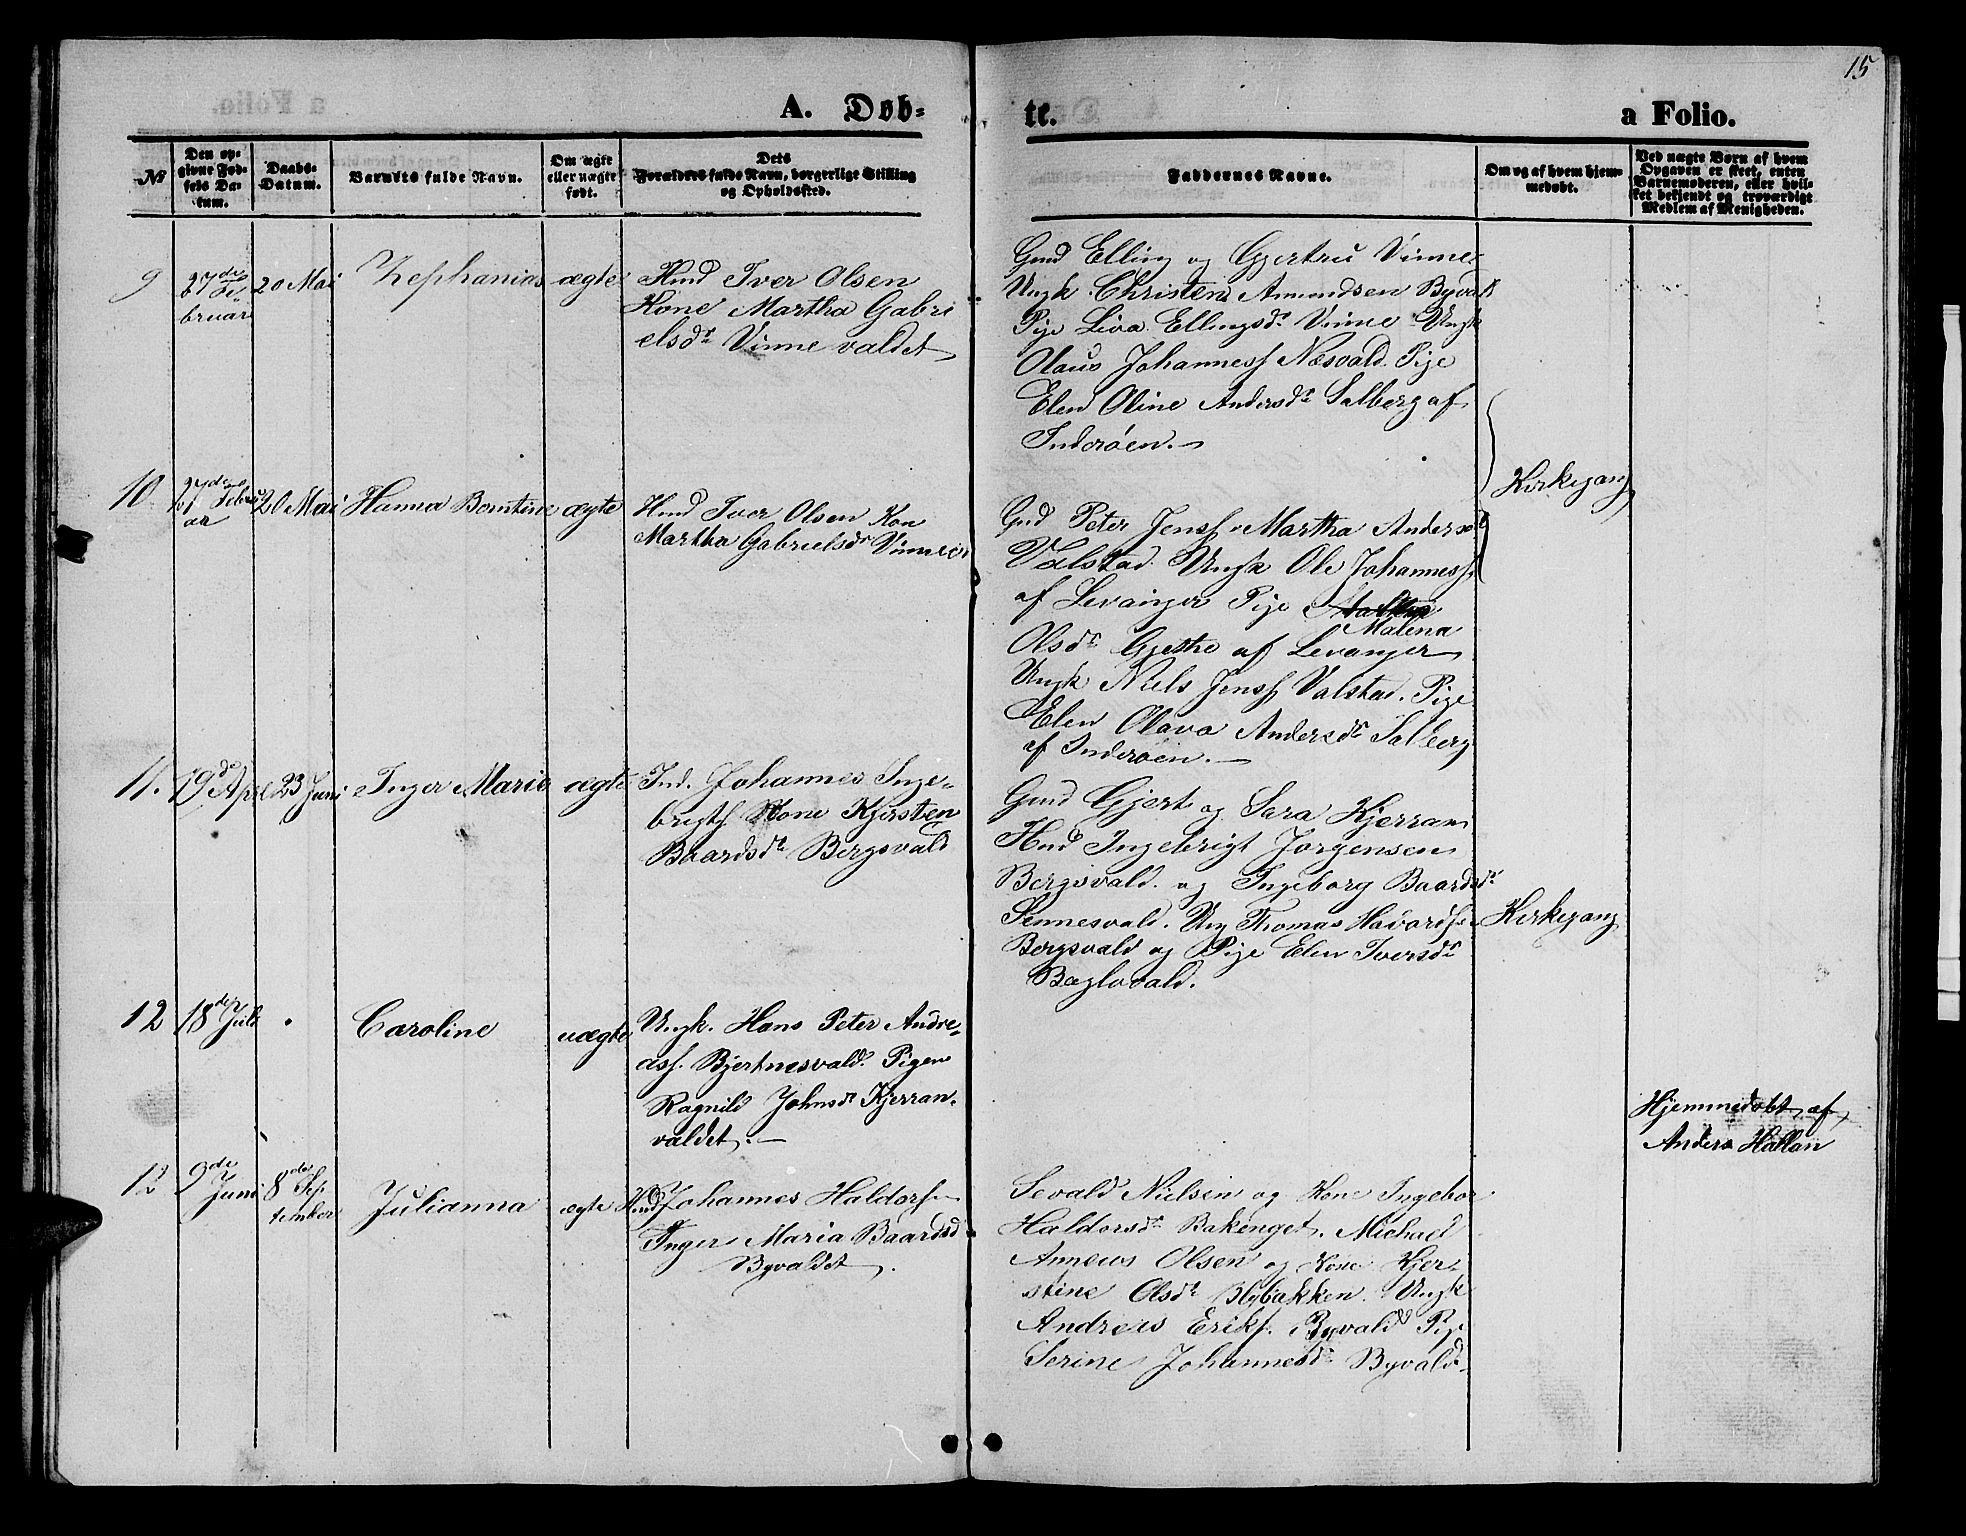 15
A. Døb-
te.
a Folio.
№
Den op-
givne Fød-
sels Da-
tum.
Daabs-
Datum.
Barnets fulde Navn.
Om ægte
eller uægte
født.
Dets
Forældres fulde Navn, borgerlige Stilling
og Opholdssted.
Faddernes Navne.
Om og af hvem hjem-
medøbt.
Ved uægte Børn af hvem
Opgaven er skeet, enten
Barnemoderen, eller hvil-
ket bekjendt og troværdigt
Medlem af Menigheden.
9
27de Fe-
bruar
20 Mai
Zephanias
ægte
Hmd Iver Olsen
Kone Martha Gabri
elsdr Vinnevaldet
Gmd Elling og Gjertru Vinne
Ungk. Christen Amundsen Byvald
Pige Liva Ellingsdr Vinne Ungk
Olaus Johanness Næsvald Pige
Elen Oline Andersdr Salberg af
Inderøen.
10
27de Febru
ar
20 Mai
Hanna Berntine
ægte
Hmd Iver Olsen Kon
Martha Gabrielsdr Vinne
Gmd Peter Jenss Martha Anders
Valstad. Ungk Ole Johanness
af Levanger Pige
Malena
Olsdr Gjethe af Levanger
Ungk Niels Jenss Valstad. Pige
Elen Olava Andersdr Salberg
af Inderøen.
Kirkegang
11.
19de April
23 Juni
Inger Marie
ægte
Ind. Johannes Inge-
brigts Kone Kjersten
Baardsdr Bergsvald
Gmd Gjert og Sara Kjerran
Hmd Ingebrigt Jørgensen
Bergsvald. og Ingeborg Baardsdr
Sennesvald. Ung Thomas Havards
Bergsvald og Pige Elen Iversdr
Baglovald.
Kirkegang
12
18de Juli
Caroline
uægte
Ungk. Hans Peter Andre-
ass. Bjertnesvald. Pigen
Ragnild Johnsdr Kjerran-
valdet.
Hjemmedøbt af
Anders Hallan
12
2de Juni
8de Sep
tember
Julianna
ægte
Hmd Johannes Haldors
Inger Maria Baardsd
Byvaldet.
Sevald Nielsen og Kone Ingebor
Haldorsdr Bakenget. Michael
Anneus Olsen og Kone Kjer-
stine Olsdr Bybakken. Ungk
Andreas Eriks. Byvald Pige
Serine Johannesdr Byvald